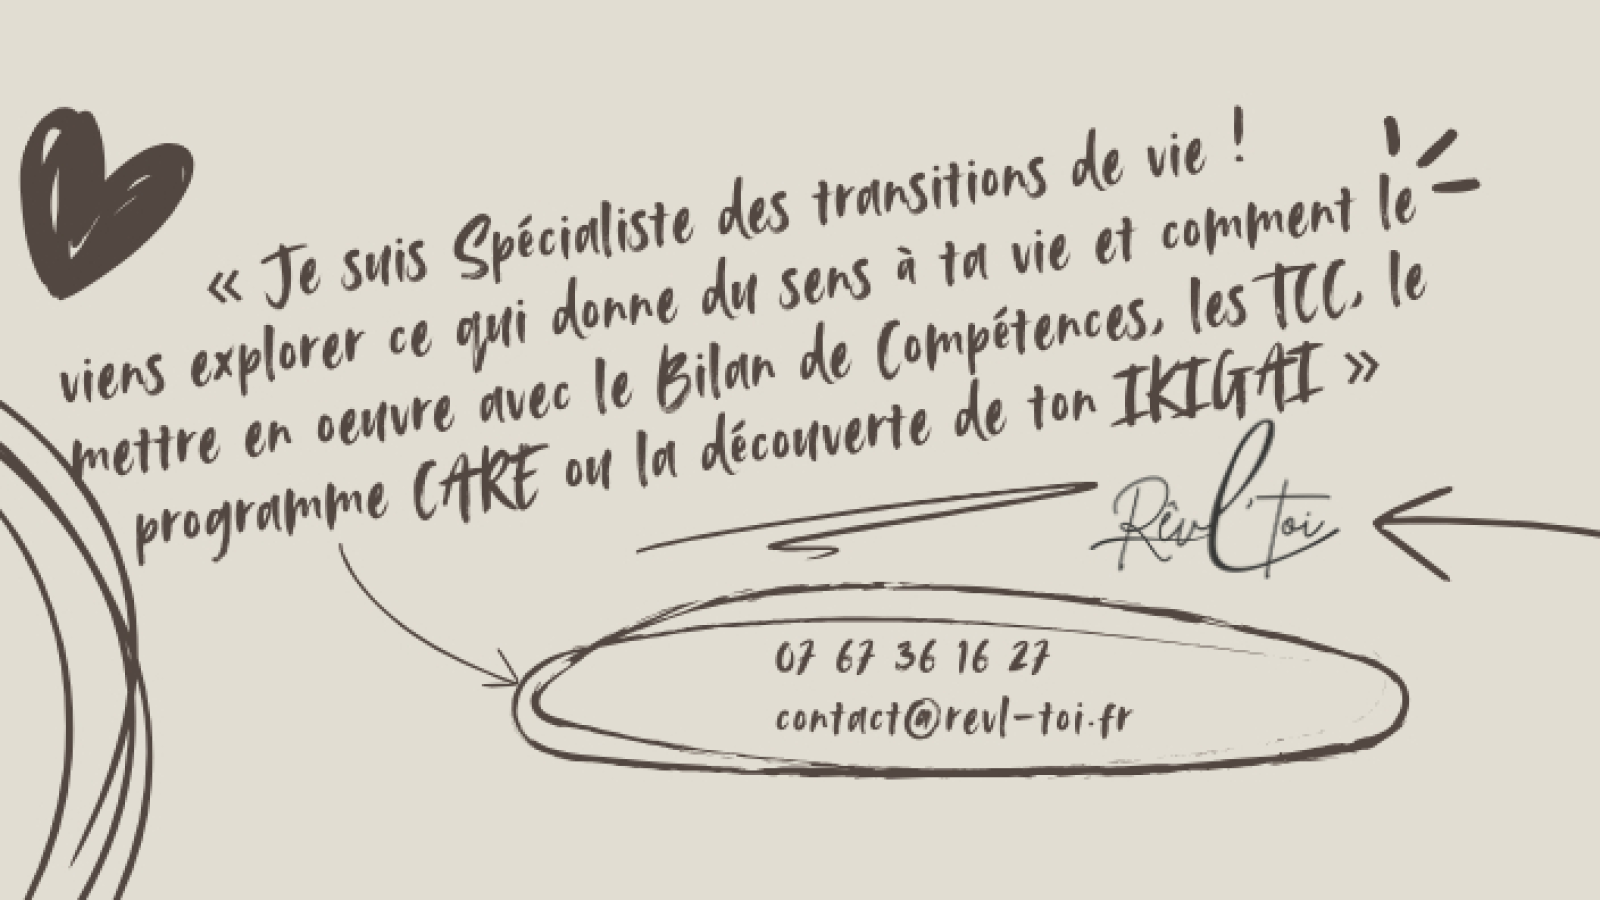 « Je suis Spécialiste des transitions de vie !
viens explorer ce qui donne du sens à ta vie et comment le
mettre en oeuvre avec le Bilan de Compétences, les TCC, le
programme CARE ou la découverte de ton IKIGAI »
Rêvl'Toi
07 67 36 16 27
contact@revl-toi.fr